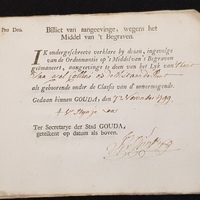 Pro Deo.
Billiet van aangeevinge, wegens het
Middel van 't Begraven.
IK ondergeschreeve verklare by deezen, ingevolge
van de Ordonnantie op 't Middel van 't Begraven
geëmaneert, aangeevinge te doen van het Lyk van
als gehoorende onder de Classis van d' onvermogende.
Gedaan binnen GOUDA, den 7 November 1799
Ter Secretarye der Stad GOUDA,
geteikent op datum als boven.